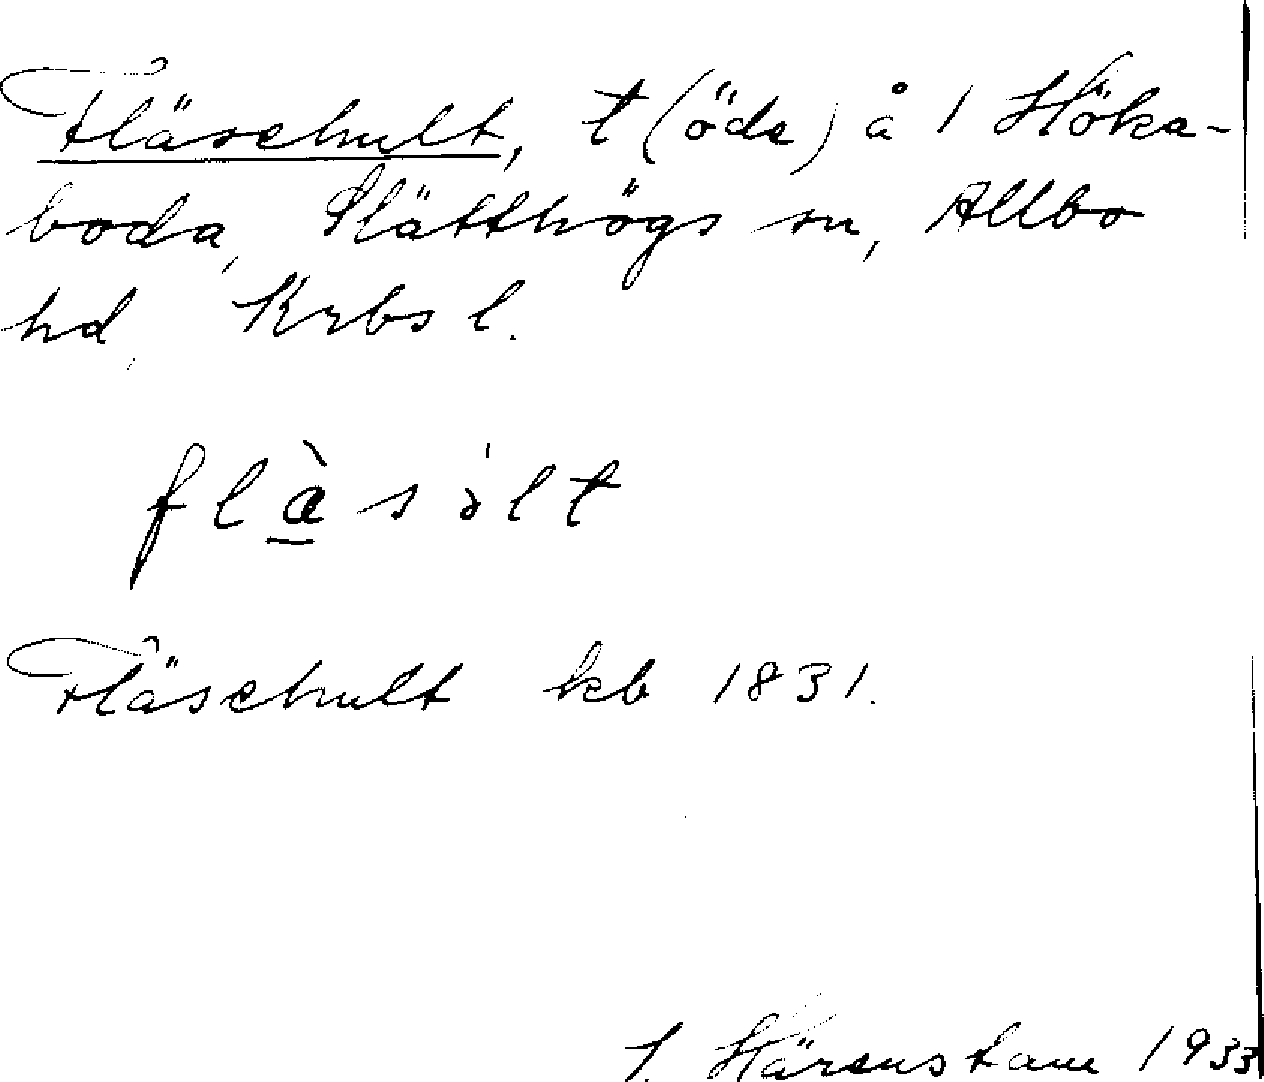 Fläsehult, t (öde) å 1 Höka-
boda, Slätthögs sn, Allbo
hd, Krbs l.
flàsòlt
Fläsehult kb 1831.
1933